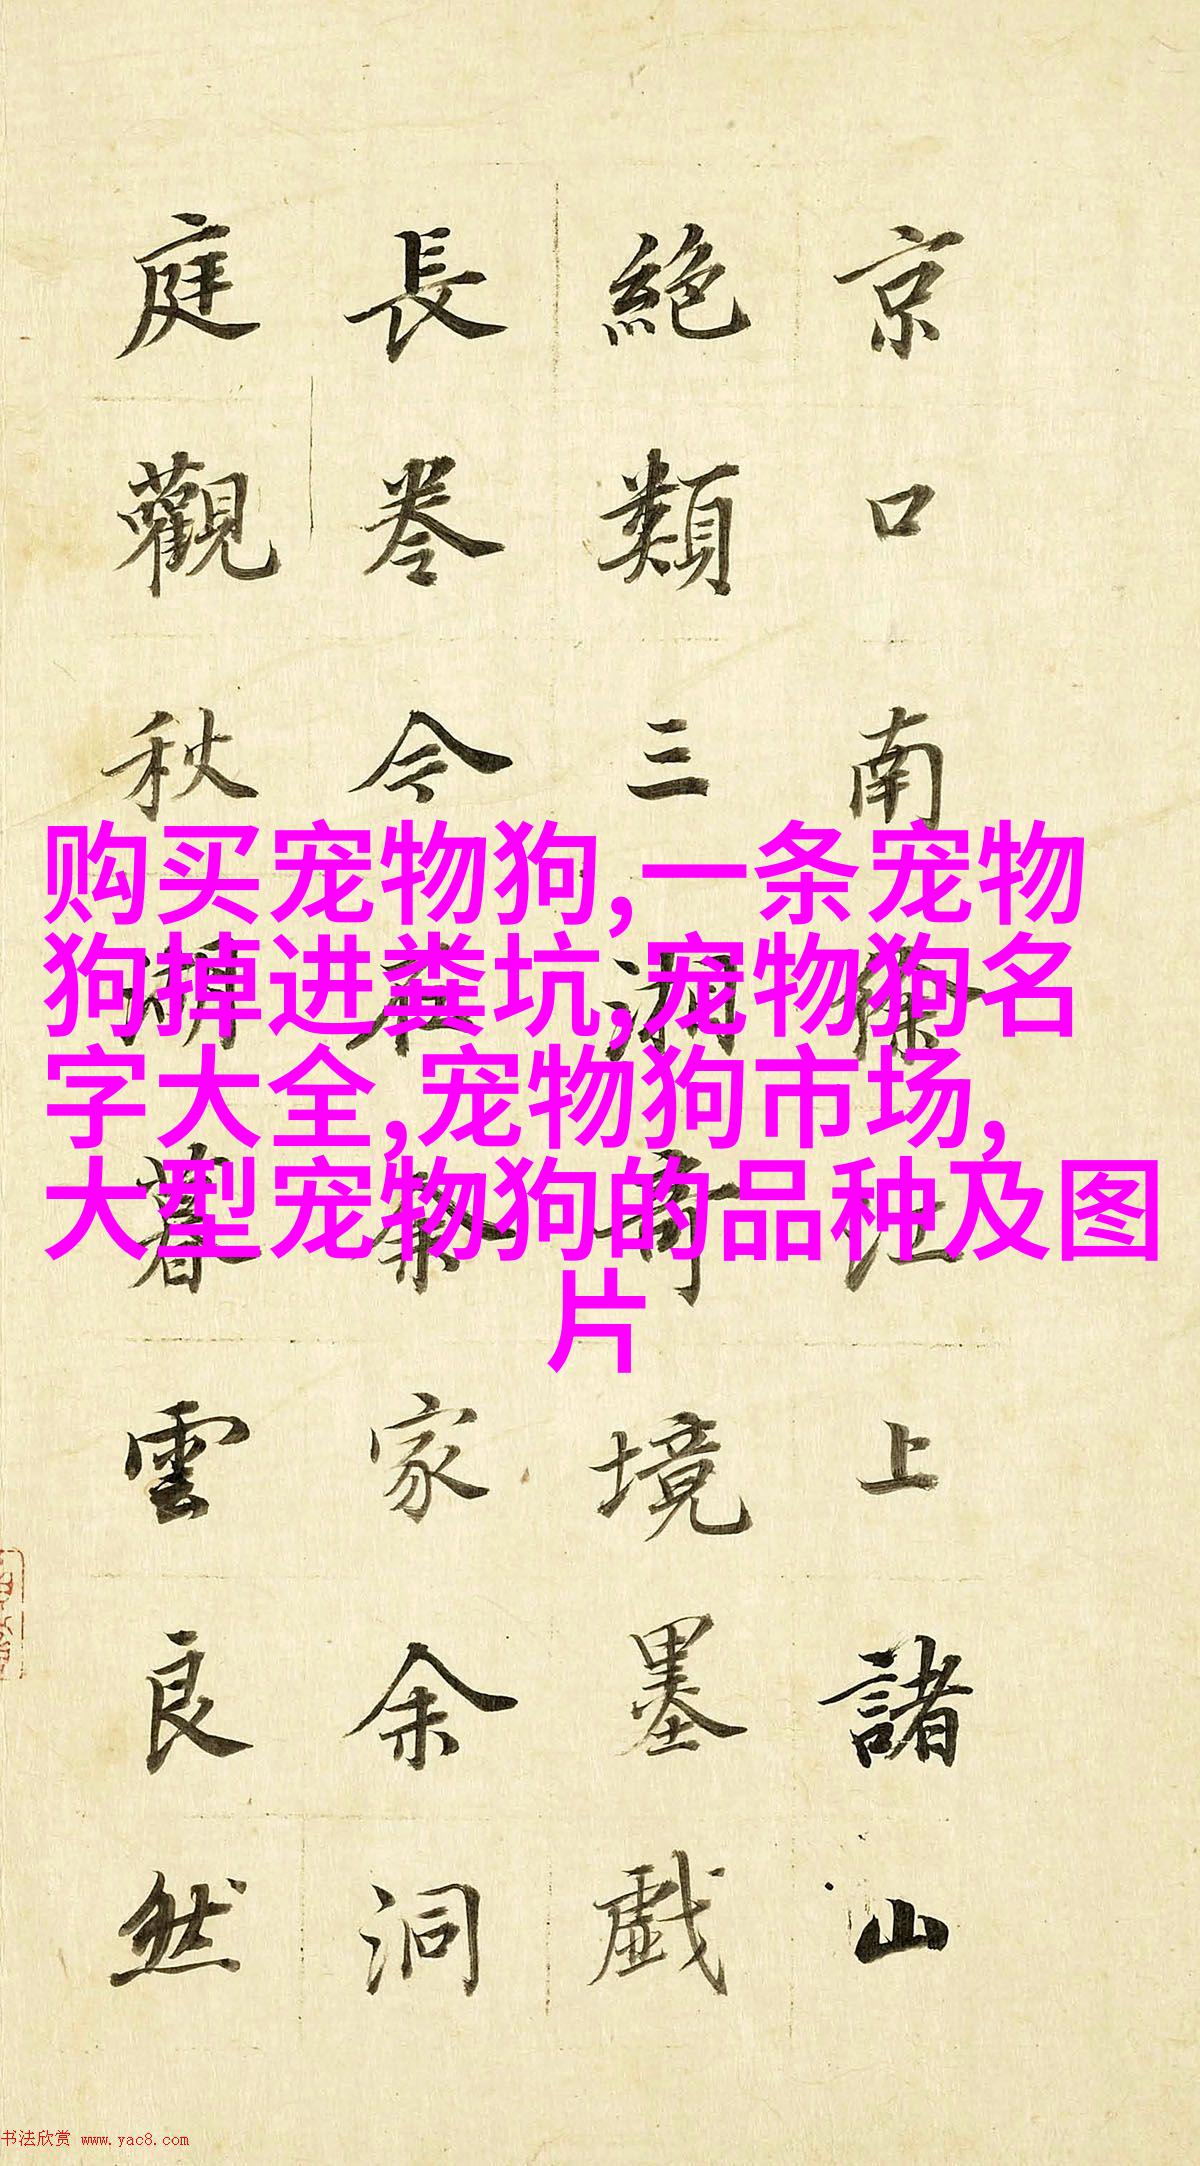 京口南徐江上諸山
絕類三湘奇境墨戲
長卷今家余洞
庭觀秋湖暮雲良然
购买宠物狗,一条宠物
狗掉进粪坑,宠物狗名
字大全,宠物狗市场,
大型宠物狗的品种及图
片
书法欣赏 www.yac8.com